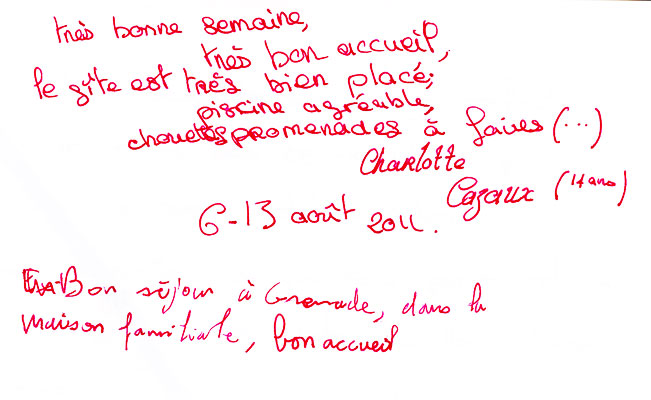 très bonne semaine,
très bon accueil,
le gîte est très bien placé;
piscine agréable,
chouettes promenades à faires (...)
Charlotte
Cazaux (14 ans)
6-13 août 2011.
Bon séjour à Grenade, dans la
maison familiale, bon accueil